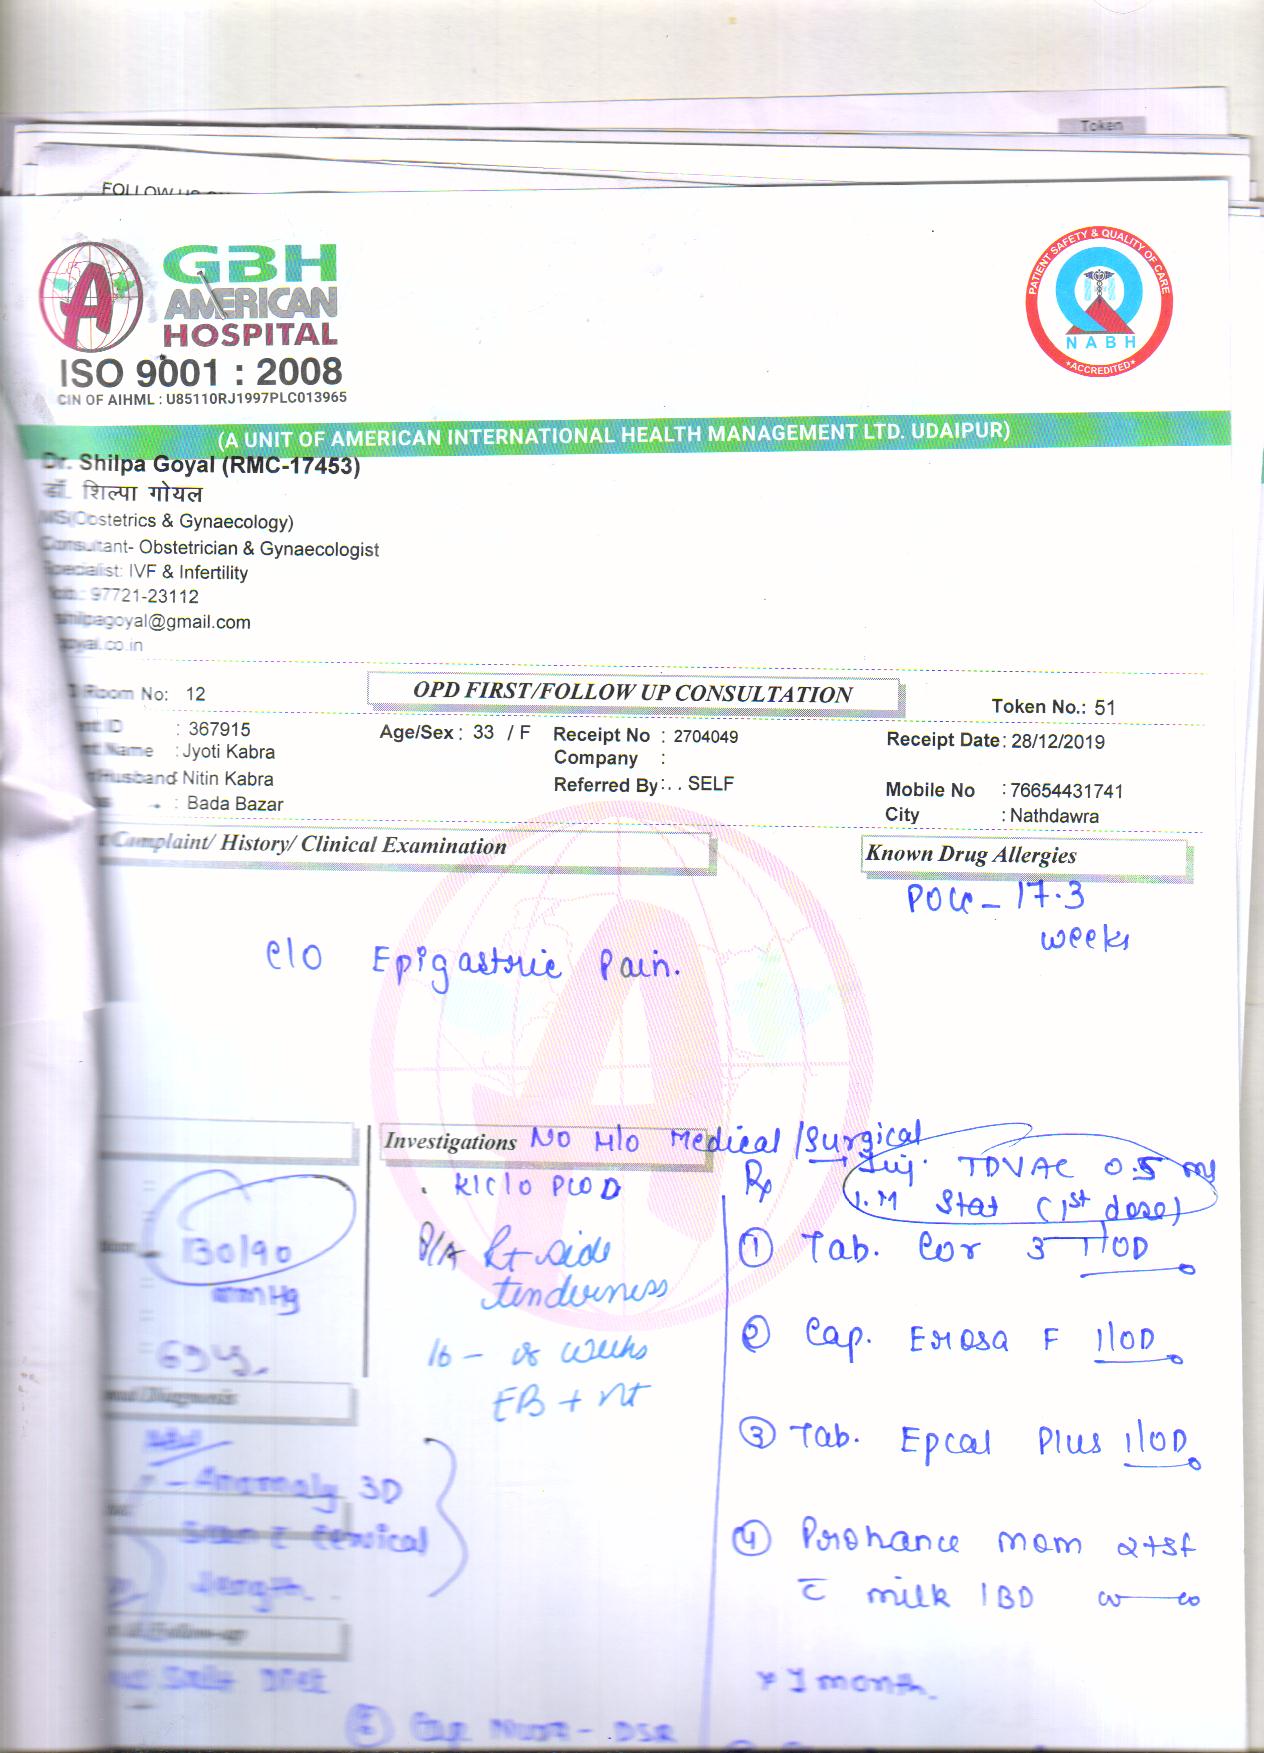 Token
FOLLOW US
GBH
AMERICAN
HOSPITAL
ISO 9001 : 2008
CIN OF AIHML : U85110RJ1997PLC013965
PATIENT SAFETY & QUALITY OF CARE
NABH
ACCREDITED
(A UNIT OF AMERICAN INTERNATIONAL HEALTH MANAGEMENT LTD. UDAIPUR)
Dr. Shilpa Goyal (RMC-17453)
डॉ. शिल्पा गोयल
MS(Obstetrics & Gynaecology)
Consultant- Obstetrician & Gynaecologist
Specialist: IVF & Infertility
97721-23112
shilpagoyal@gmail.com
goyal.co.in
Room No: 12
OPD FIRST/FOLLOW UP CONSULTATION
Token No.: 51
ID : 367915 Age/Sex : 33 / F Receipt No : 2704049 Receipt Date: 28/12/2019
Name : Jyoti Kabra Company :
Husband : Nitin Kabra Referred By : . . SELF Mobile No : 76654431741
: Bada Bazar City : Nathdawra
Complaint/ History/ Clinical Examination
Known Drug Allergies
POG - 17.3
weeks
c/o Epigastric Pain.
Investigations No H/o Medical/Surgical
K/C/O PCOD
Rx
Inj. TDVAC 0.5 mg
I.M Stat (1st dose)
130/90
mmHg
P/A Rt side
tenderness
16 - 18 weeks
① Tab. Cor 3 1/OD
② Cap. Erosa F 1/OD
③ Tab. Epcal Plus 1/OD
④ Prohance mom 2tsf
c̄ milk 1BD
x 1 month.
Diagnosis
- Anomaly 3D
Scan c̄ cervical
length.
Follow-up
Salt Diet